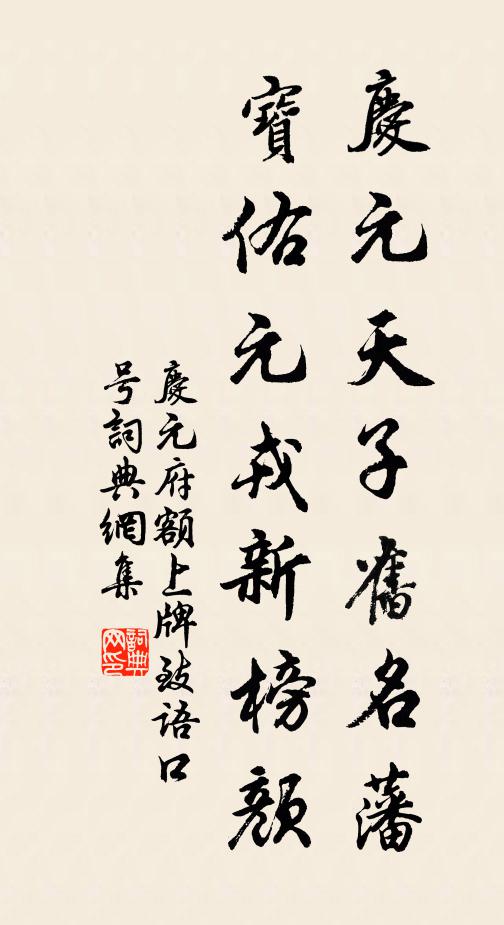 慶元天子舊名藩
寶佑元戎新榜顏
慶元府額上牌致語口
号詞典網集
詞典网印